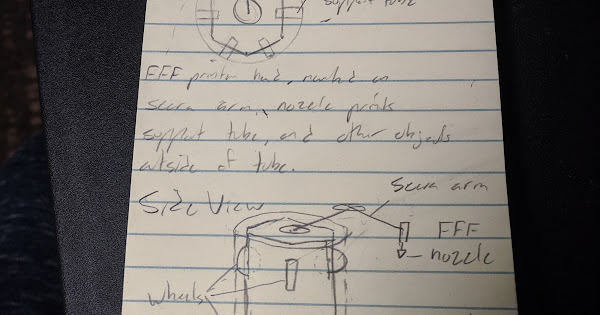 support tube
FFF printer head, mounted on
scara arm, nozzle prints
support tube, and other objects
outside of tube.
Side View
scara arm
FFF
nozzle
wheels